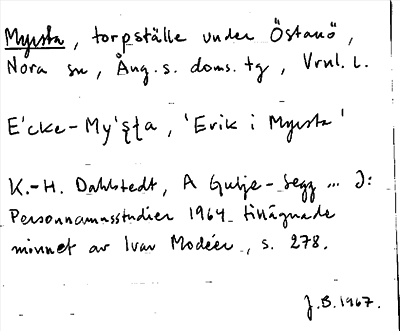 Myrsta, torpställe under Östanö,
Nora sn, Ång. s. doms. tg, Vrnl. l.
E'cke-My'ʂʈa, 'Erik i Myrsta'
K.-H. Dahlstedt, A Gulje-Segg ... J:
Personnamnsstudier 1964 tillägnade
minnet av Ivar Modéer, s. 278.
J.B. 1967.